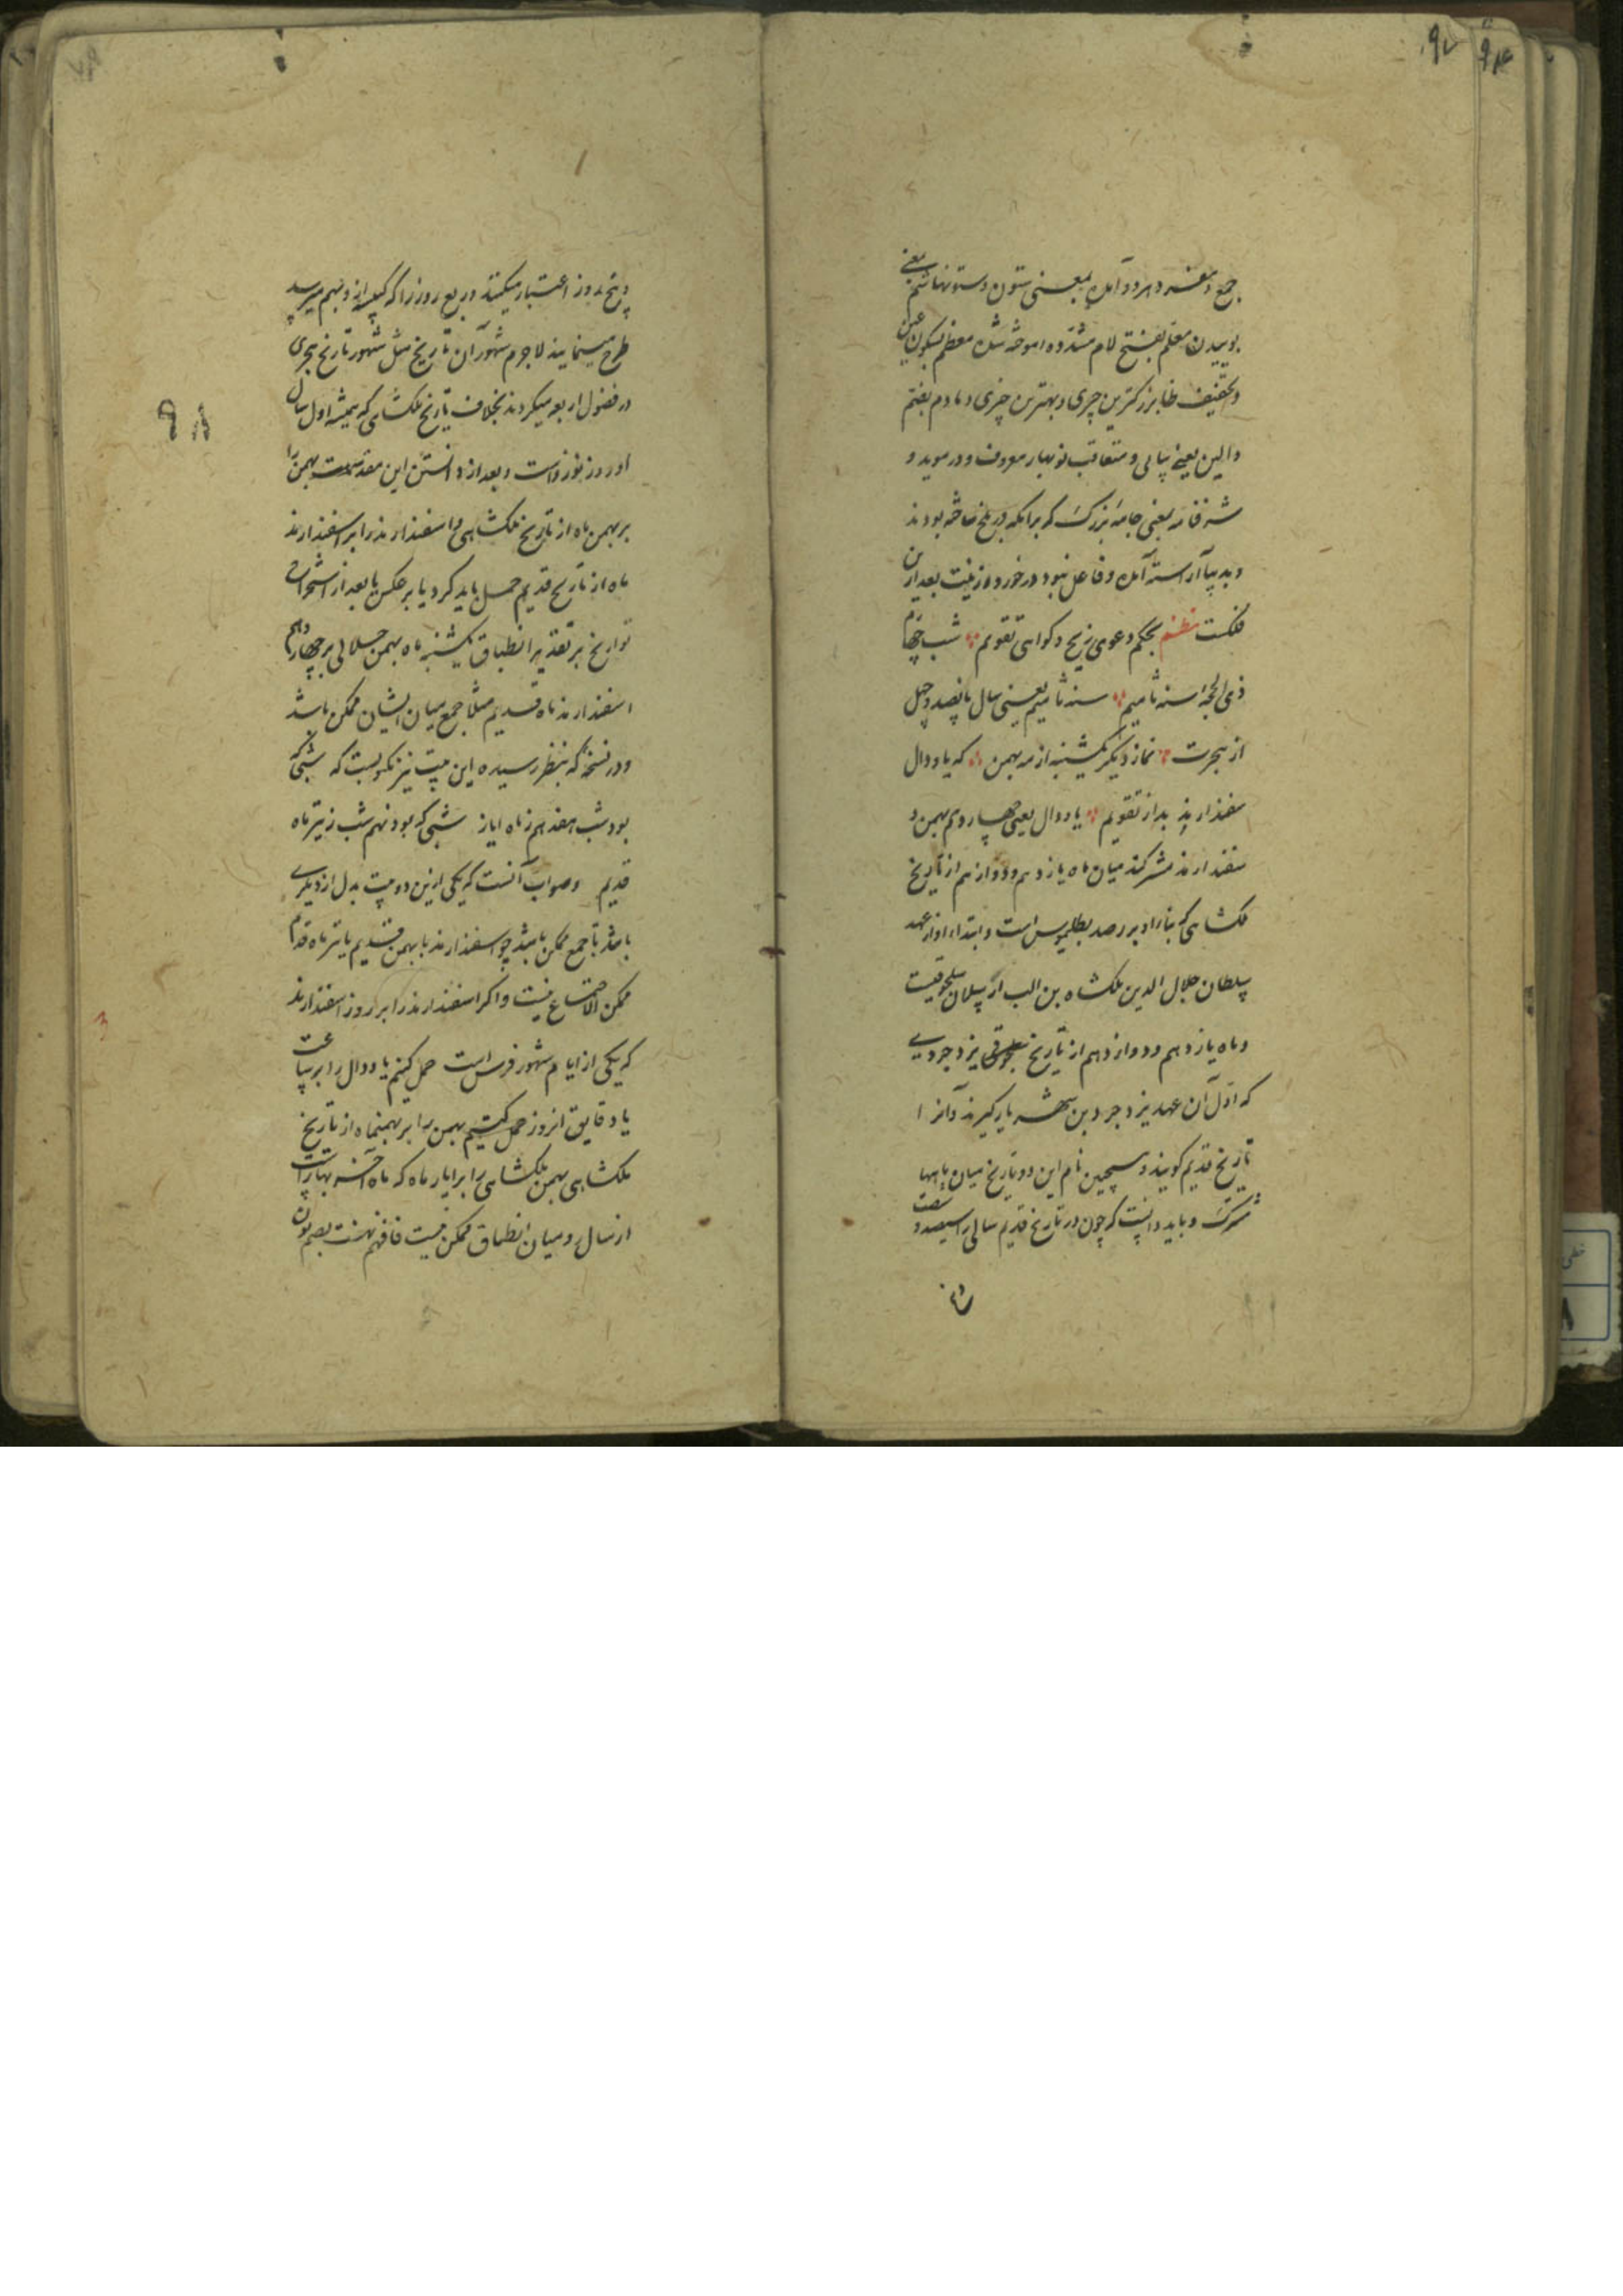 ۹۷
جمع و مفرد هر دو آمده بمعنی ستون و ستونها شم یعنی
بوییدن معلم بفتح لام مشدده اموخته شده معظم بسکون عین
و تخفیف ظا بزرکترین چیزی و بهترین چیزی دمادم بفتح
دالین یعنی پیاپی و متعاقب نوبهار معروف و در موید و
شرفنامه بمعنی جامه بزرک که برامکه در بلخ ساخته بودند
و بدیبا آراسته آمده و فاعل نبود در خورد و زینت بعد ازین
فلکست نظم بحکم دعوی زیج و کواهی تقویم شب چهارم
ذی الحجه سنه ثامیم سنه ثامیم یعنی سال پانصد و چهل
از هجرت نماز دیگر یکشنبه از مه بهمن که یا و دال
سفندارمذ بد از تقویم یا و دال یعنی چهاردهم بهمن و
سفندارمذ مشترکند میان ماه یازدهم و دوازدهم از تاریخ
ملکشاهی که بناء او بر رصد بطلیموس است و ابتداء او از عهد
سلطان جلال الدین ملکشاه بن الب ارسلان سلجوقیست
و ماه یازدهم و دوازدهم از تاریخ یزدجردی
که اول آن عهد یزدجرد بن شهریار کیرند و آنرا
تاریخ قدیم کویند و همچنین نام این دو تاریخ میان ماهها
مشترک و باید دانست که چون در تاریخ قدیم سالی را سیصد و شصت
و پنج
۹۸
و پنج روز اعتبار میکنند و ربع روز را که کبیسه ازو بهم میرسد
طرح مینمایند لاجرم شهور آن تاریخ مثل شهور تاریخ هجری
در فصول اربعه میکردند بخلاف تاریخ ملکشاهی که همیشه اول سال
او روز نوروزاست و بعد از دانستن این مقدمات بهمن را
بر بهمن ماه از تاریخ ملکشاهی و اسفندارمذ را بر اسفندارمذ
ماه از تاریخ قدیم حمل باید کرد یا بر عکس تا بعد از استخراج
تواریخ بر تقدیر انطباق یکشنبه ماه بهمن جلالی بر چهاردهم
اسفندارمذ ماه قدیم مثلا جمع میان ایشان ممکن باشد
و در نسخه که بنظر رسیده این بیت نیز مکتوبست که شبی که
بود شب هفدهم ز ماه ایار شبی که بود نهم شب ز تیر ماه
قدیم و صواب آنست که یکی ازین دو بیت بدل از دیگری
باشد تا جمع ممکن باشد چو اسفندارمذ با بهمن قدیم یا تیر ماه قدیم
ممکن الاجتماع نیست و اکر اسفندارمذ را بر روز اسفندارمذ
که یکی از ایام شهور فرس است حمل کنیم یا و دال را بر ساعت
یا دقایق انروز حمل کنیم بهمن را بر بهمنماه از تاریخ
ملکشاهی بهمن ملکشاهی را بر ایار ماه که ماه آخر بهار است
از سال رومیان انطباق ممکن نیست فافهم